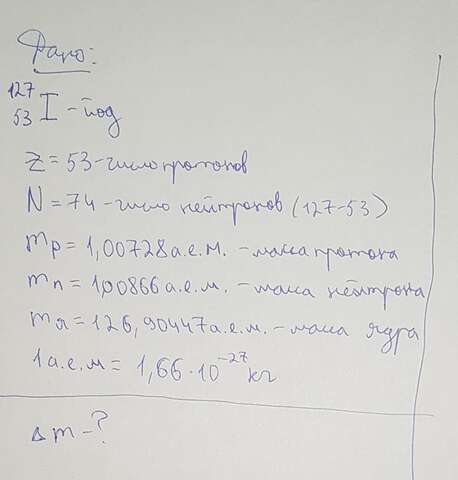 Дано:
127
53 I - йод
Z = 53 - число протонов
N = 74 - число нейтронов (127-53)
mp = 1,00728 а.е.м. - масса протона
mn = 1,00866 а.е.м. - масса нейтрона
mя = 126,90447 а.е.м. - масса ядра
1 а.е.м = 1,66·10⁻²⁷ кг
Δm - ?